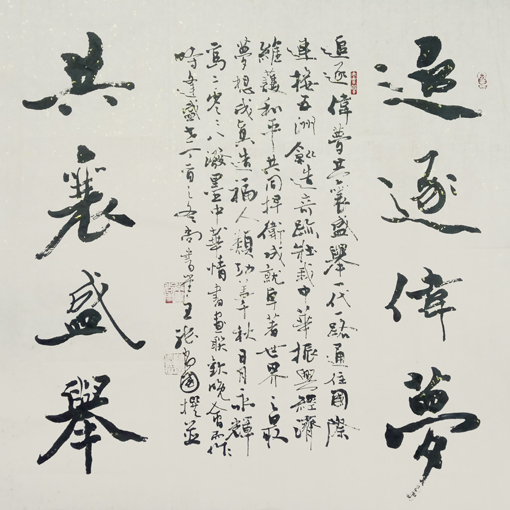 追逐偉夢
追逐偉夢共襄盛舉一代一路通往國際
連接五洲創造奇跡壯哉中華振興經濟
維護和平共同捍衛成就卓著世界之最
夢想成真造福人類功蓋千秋日月永輝
寫二零一八潑墨中華情書畫聯歡晚會而作
時逢盛世
共襄盛舉